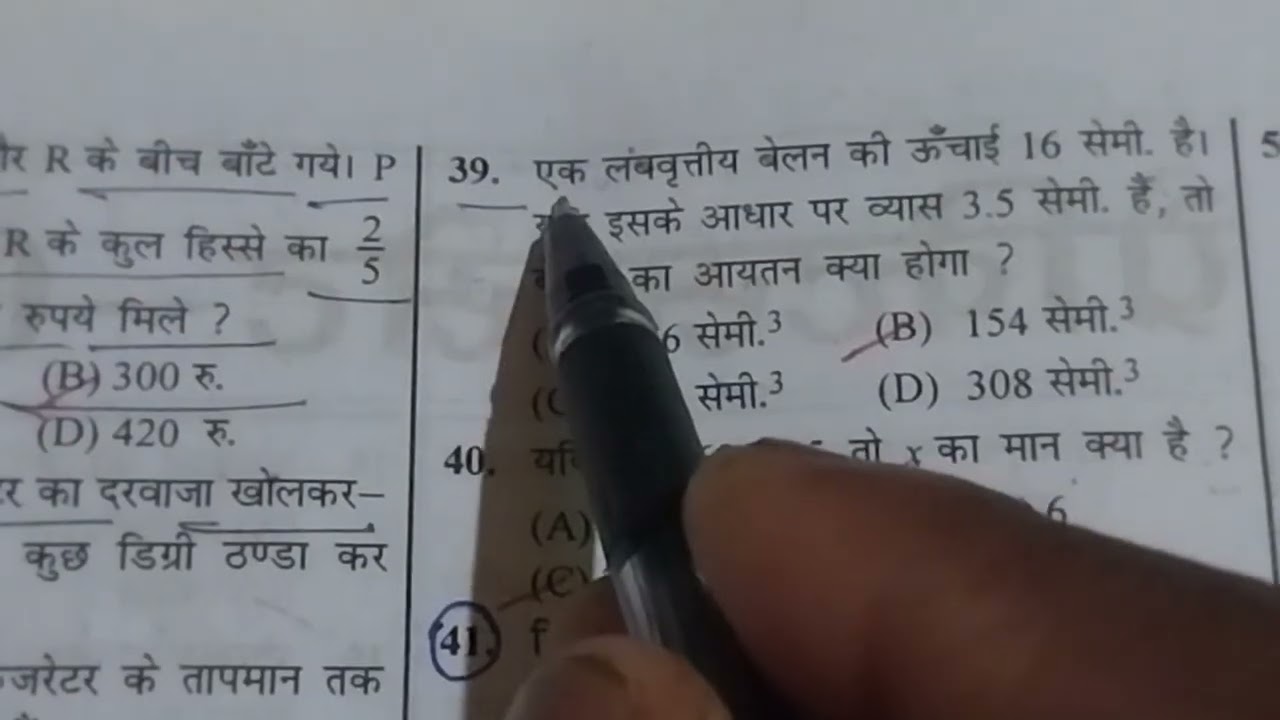 और R के बीच बाँटे गये। P
R के कुल हिस्से का 2/5
रुपये मिले ?
(B) 300 रु.
(D) 420 रु.
का दरवाजा खोलकर–
कुछ डिग्री ठण्डा कर
के तापमान तक
39. एक लंबवृत्तीय बेलन की ऊँचाई 16 सेमी. है।
इसके आधार पर व्यास 3.5 सेमी. है, तो
का आयतन क्या होगा ?
6 सेमी.³ (B) 154 सेमी.³
सेमी.³ (D) 308 सेमी.³
40. तो x का मान क्या है ?
(A) 6
(C)
41.
5